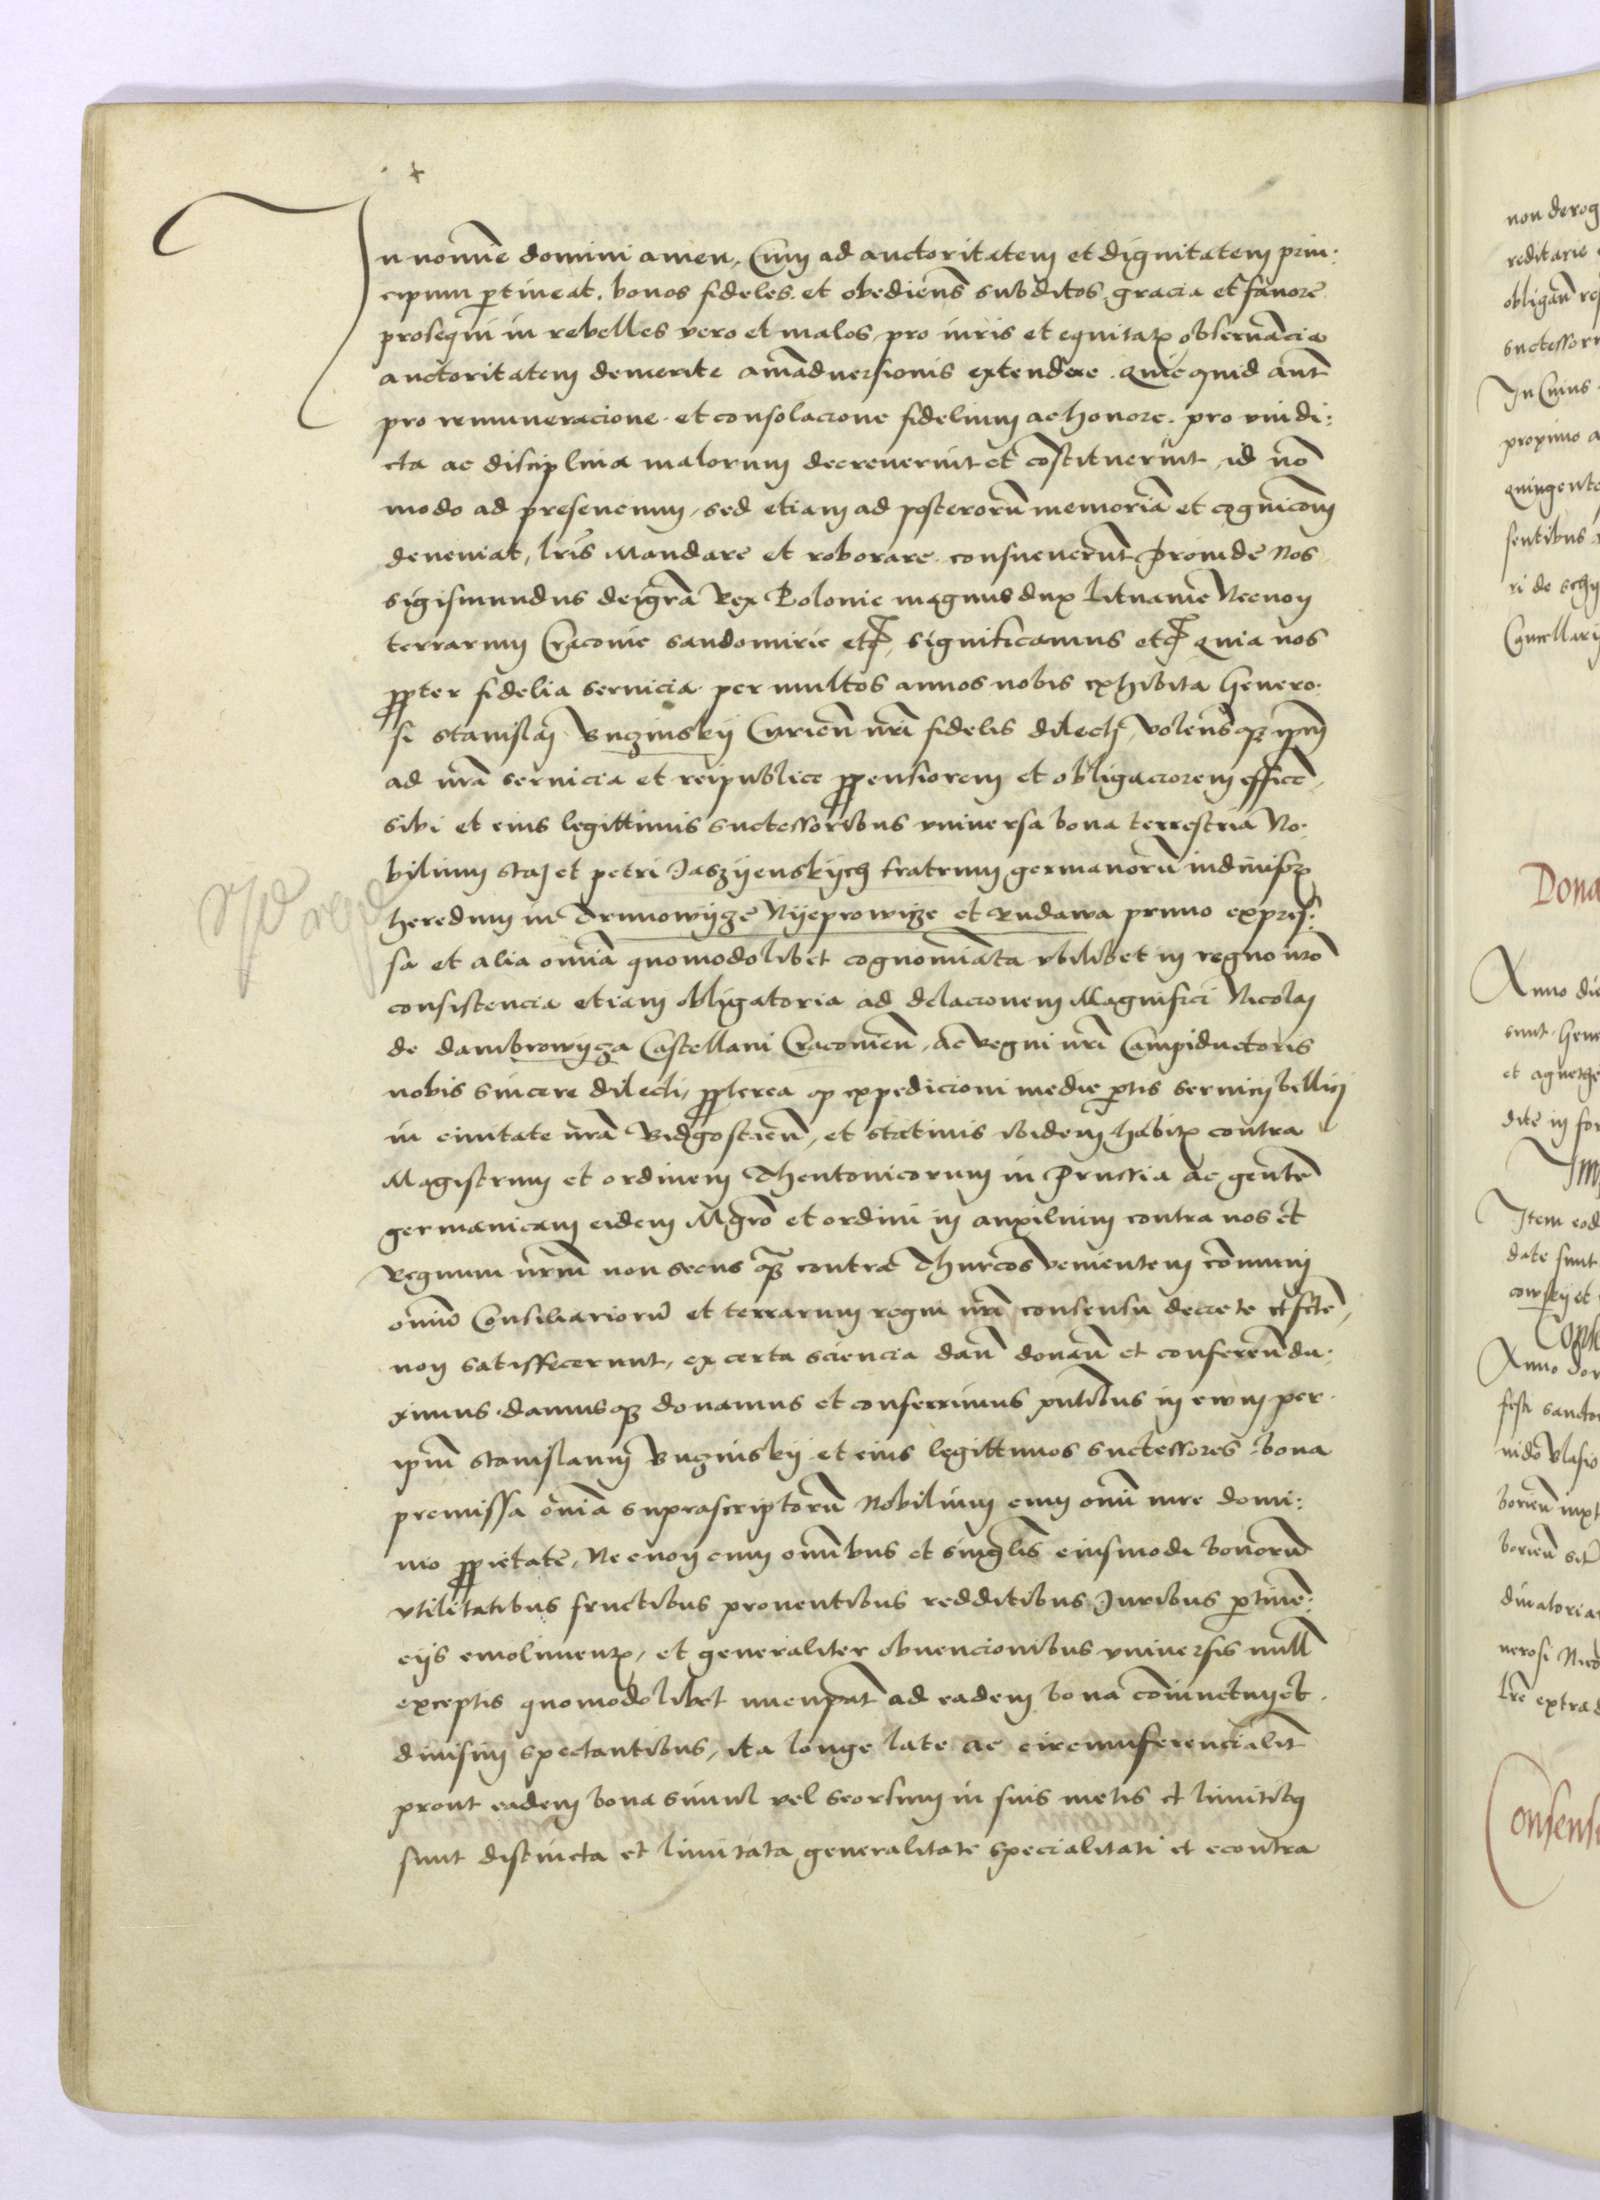 In nomīe domini amen. Cum ad auctoritatem et dignitatem prin:
cipum ptineat. bonos fideles. et obediens subditos gracia et favore
prosequi in rebelles vero et malos pro iuris et equitatis observācia
auctoritatem demerite aīadversionis extendere. Quicquid aūt
pro remuneracione et consolacione fidelium ac honore. pro vindi:
cta ac disciplina malorum decreverint et cōstituerint, id nō
modo ad presencium, sed etiam ad posterorū memoriā et cognicōem
deveniat, lrīs Mandare et roborare consueverūt Proinde Nos
Sigismundus dei grā Rex Polonie magnus dux Lituanie Necnon
terrarum Cracovie Sandomirie etc, Significamus etc Quia nos
propter fidelia servicia per multos annos nobis exhibita Genero:
si Stanislai Buzinskij Curien nrī fidelis dilecti, volensq ipm
ad nrā servicia et reipublice propensiorem et obligaciorem efficē,
sibi et eius legittimis successoribus universa bona terrestria No:
bilium Stai et petri Jaszyenskych fratrum germanorū indivisor
heredum in Drunowijze Nyeprowijze et Rudawa primo expres:
sa et alia omīa quomodolibet cognomiata ubilibet in regno nrō
consistencia etiam obligatoria ad delacionem Magnifici Nicolai
de dambrowijza Castellani Cracovien, Ac Regni nrī Campiductoris
nobis sincere dilecti, propterea q expedicioni medie ptis servicij bellici
in civitate nrā Bidgostien, et stativis ibidem habitis contra
Magistrum et ordinem Theutonicorum in Prussia Ac gentē
germanicam eidem Mgrō et ordini in auxilium contra nos et
Regnum nrm non secus q contra Thurcos venientem cōmuni
omniū Consiliariorū et terrarum regni nrī consensu decrete et fcte,
non satisfecerunt, ex certa sciencia dan donan et conferen du:
ximus. damusq donamus et conferrimus pntibus in evum per
ipm Stanislaum Buzinskij et eius legittimos successores bona
premissa omīa suprascriptorū Nobilium cum omī iure domi:
nio proprietate, Necnon cum omībus et singlis eiusmodi bonorū
utilitatibus fructibus proventibus redditibus Juribus ptinē:
cijs emolimentis, et generaliter obvencionibus universis null
exceptis quomodolibet nuncupat ad eadem bona coniunctim et
divisim spectantibus, ita longe late ac circumferencialit
prout eadem bona simul vel seorsum in suis metis et limitibus
sunt distincta et limitata generalitate specialitati et econtra
non derog
reditarie
obligan
successor
In Cuius
proximo a
quingente
sentibus
ri de schy
Cancellarij
Dona
Anno die
sunt Gene
dite in for
Item eod
date sunt
Anno do
festi sancto
nido Vlasio
borien iuxt
borien
dinatoria
nerosi Nico
lre extra
Consens